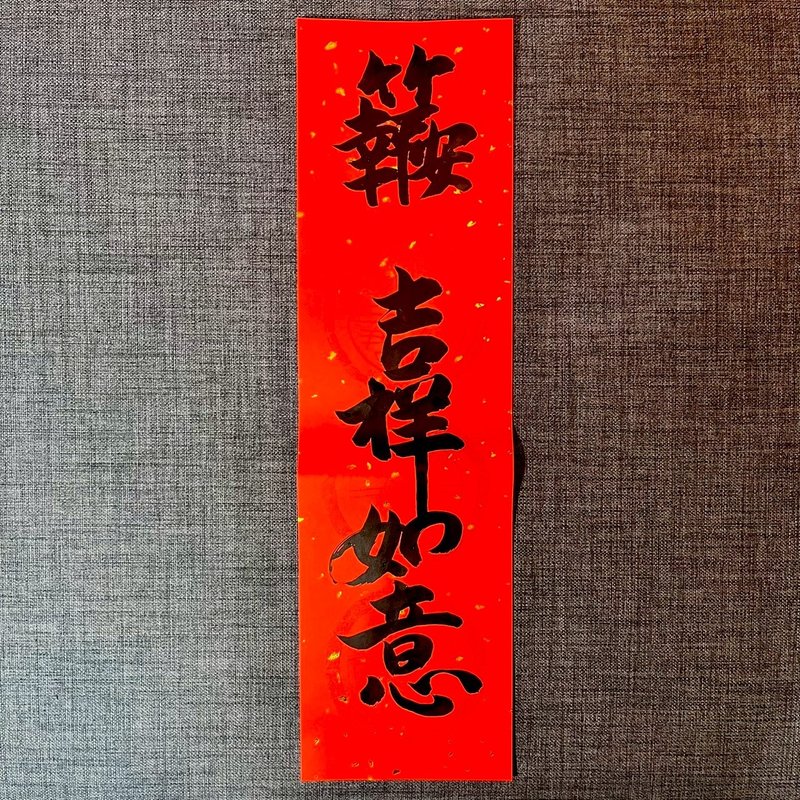 竹報平安
吉祥如意